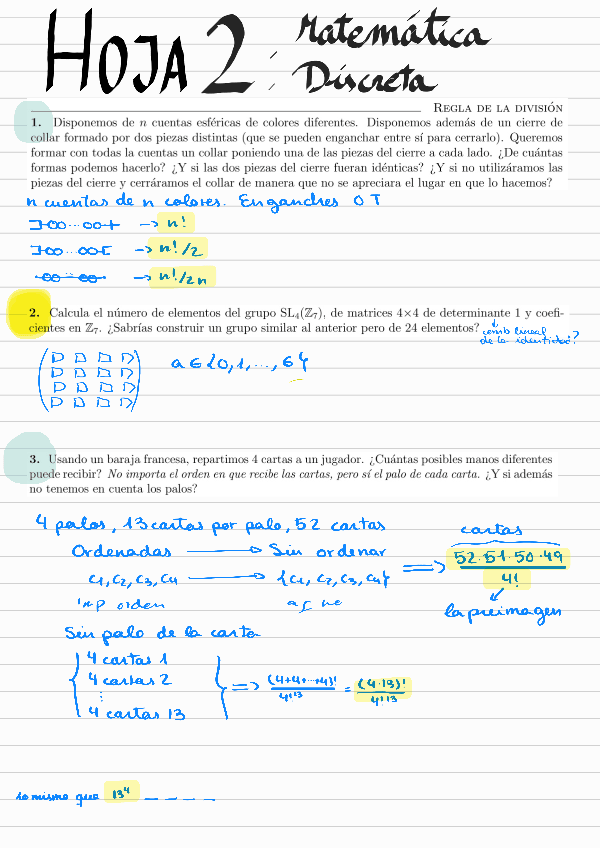 HOJA 2; Matemática
Discreta
Regla de la división
1. Disponemos de n cuentas esféricas de colores diferentes. Disponemos además de un cierre de
collar formado por dos piezas distintas (que se pueden enganchar entre sí para cerrarlo). Queremos
formar con todas la cuentas un collar poniendo una de las piezas del cierre a cada lado. ¿De cuántas
formas podemos hacerlo? ¿Y si las dos piezas del cierre fueran idénticas? ¿Y si no utilizáramos las
piezas del cierre y cerráramos el collar de manera que no se apreciara el lugar en que lo hacemos?
n cuentas de n colores. Enganches
→ n!
→ n!/2
→ n!/2n
2. Calcula el número de elementos del grupo SL₄(ℤ₇), de matrices 4×4 de determinante 1 y coefi-
cientes en ℤ₇. ¿Sabrías construir un grupo similar al anterior pero de 24 elementos?
comb lineal
de la identidad?
a ∈ {0, 1, ..., 6}
3. Usando un baraja francesa, repartimos 4 cartas a un jugador. ¿Cuántas posibles manos diferentes
puede recibir? No importa el orden en que recibe las cartas, pero sí el palo de cada carta. ¿Y si además
no tenemos en cuenta los palos?
4 palos, 13 cartas por palo, 52 cartas
Ordenadas → Sin ordenar
C1, C2, C3, C4 → {C1, C2, C3, C4}
imp orden
no
cartas
⇒ 52·51·50·49 / 4!
la preimagen
Sin palo de la carta
4 cartas 1
4 cartas 2
⋮
4 cartas 13
⇒ (4+4+...+4)! / 4!¹³ = (4·13)! / 4!¹³
lo mismo que 13⁴ _ _ _ _